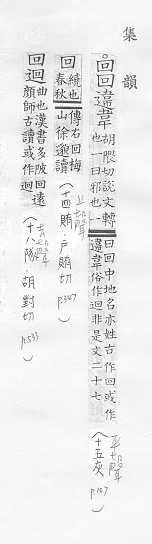 集韻
回囘違韋 胡隈切說文轉也一曰邪也一曰回中地名亦姓古作囘或作違韋俗作迴非是文二十七 (十五灰 p.107) 平聲
回 繞也春秋傳右回梅山徐邈讀 (十四賄·戶賄切 p.347) 上聲
回迴 曲也漢書多陂回遠顏師古讀或作迴 (十八隊·胡對切 p.533) 去聲